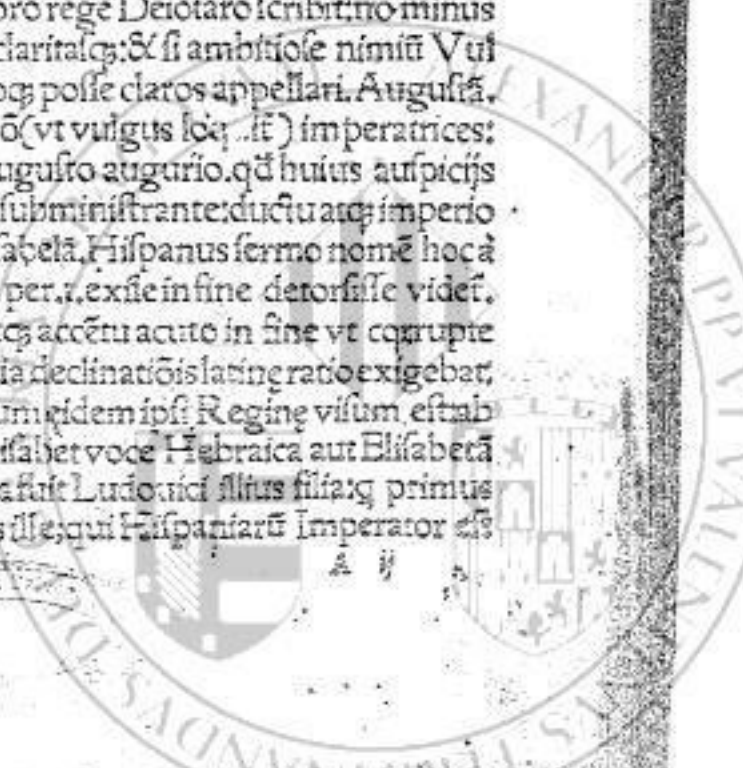 pro rege Deiotaro ſcribit: nō minus
claritaſq;: & ſi ambitioſe nimiū Vul
oq; poſſe claros appellari. Auguſtā.
ō(vt vulgus imperatrices:
uguſto augurio. qđ huius auſpicijs
ſubminiſtrante: ductu atq; imperio
ſabelā. Hiſpanus ſermo nomē hoc a
per .i. exſle in fine detorſiſſe videt̄.
tq; accētu acuto in fine vt corrupte
ia declinatiōis latinę ratio exigebat,
um eidem ipſi Reginę viſum eſt: ab
iſabet voce Hebraica aut Eliſabetā
a fuit Ludouici illius filia: q primus
s ille; qui Hiſpaniarū Imperator eſt
A ij
ALEXANDER PP VI VALENTINVS